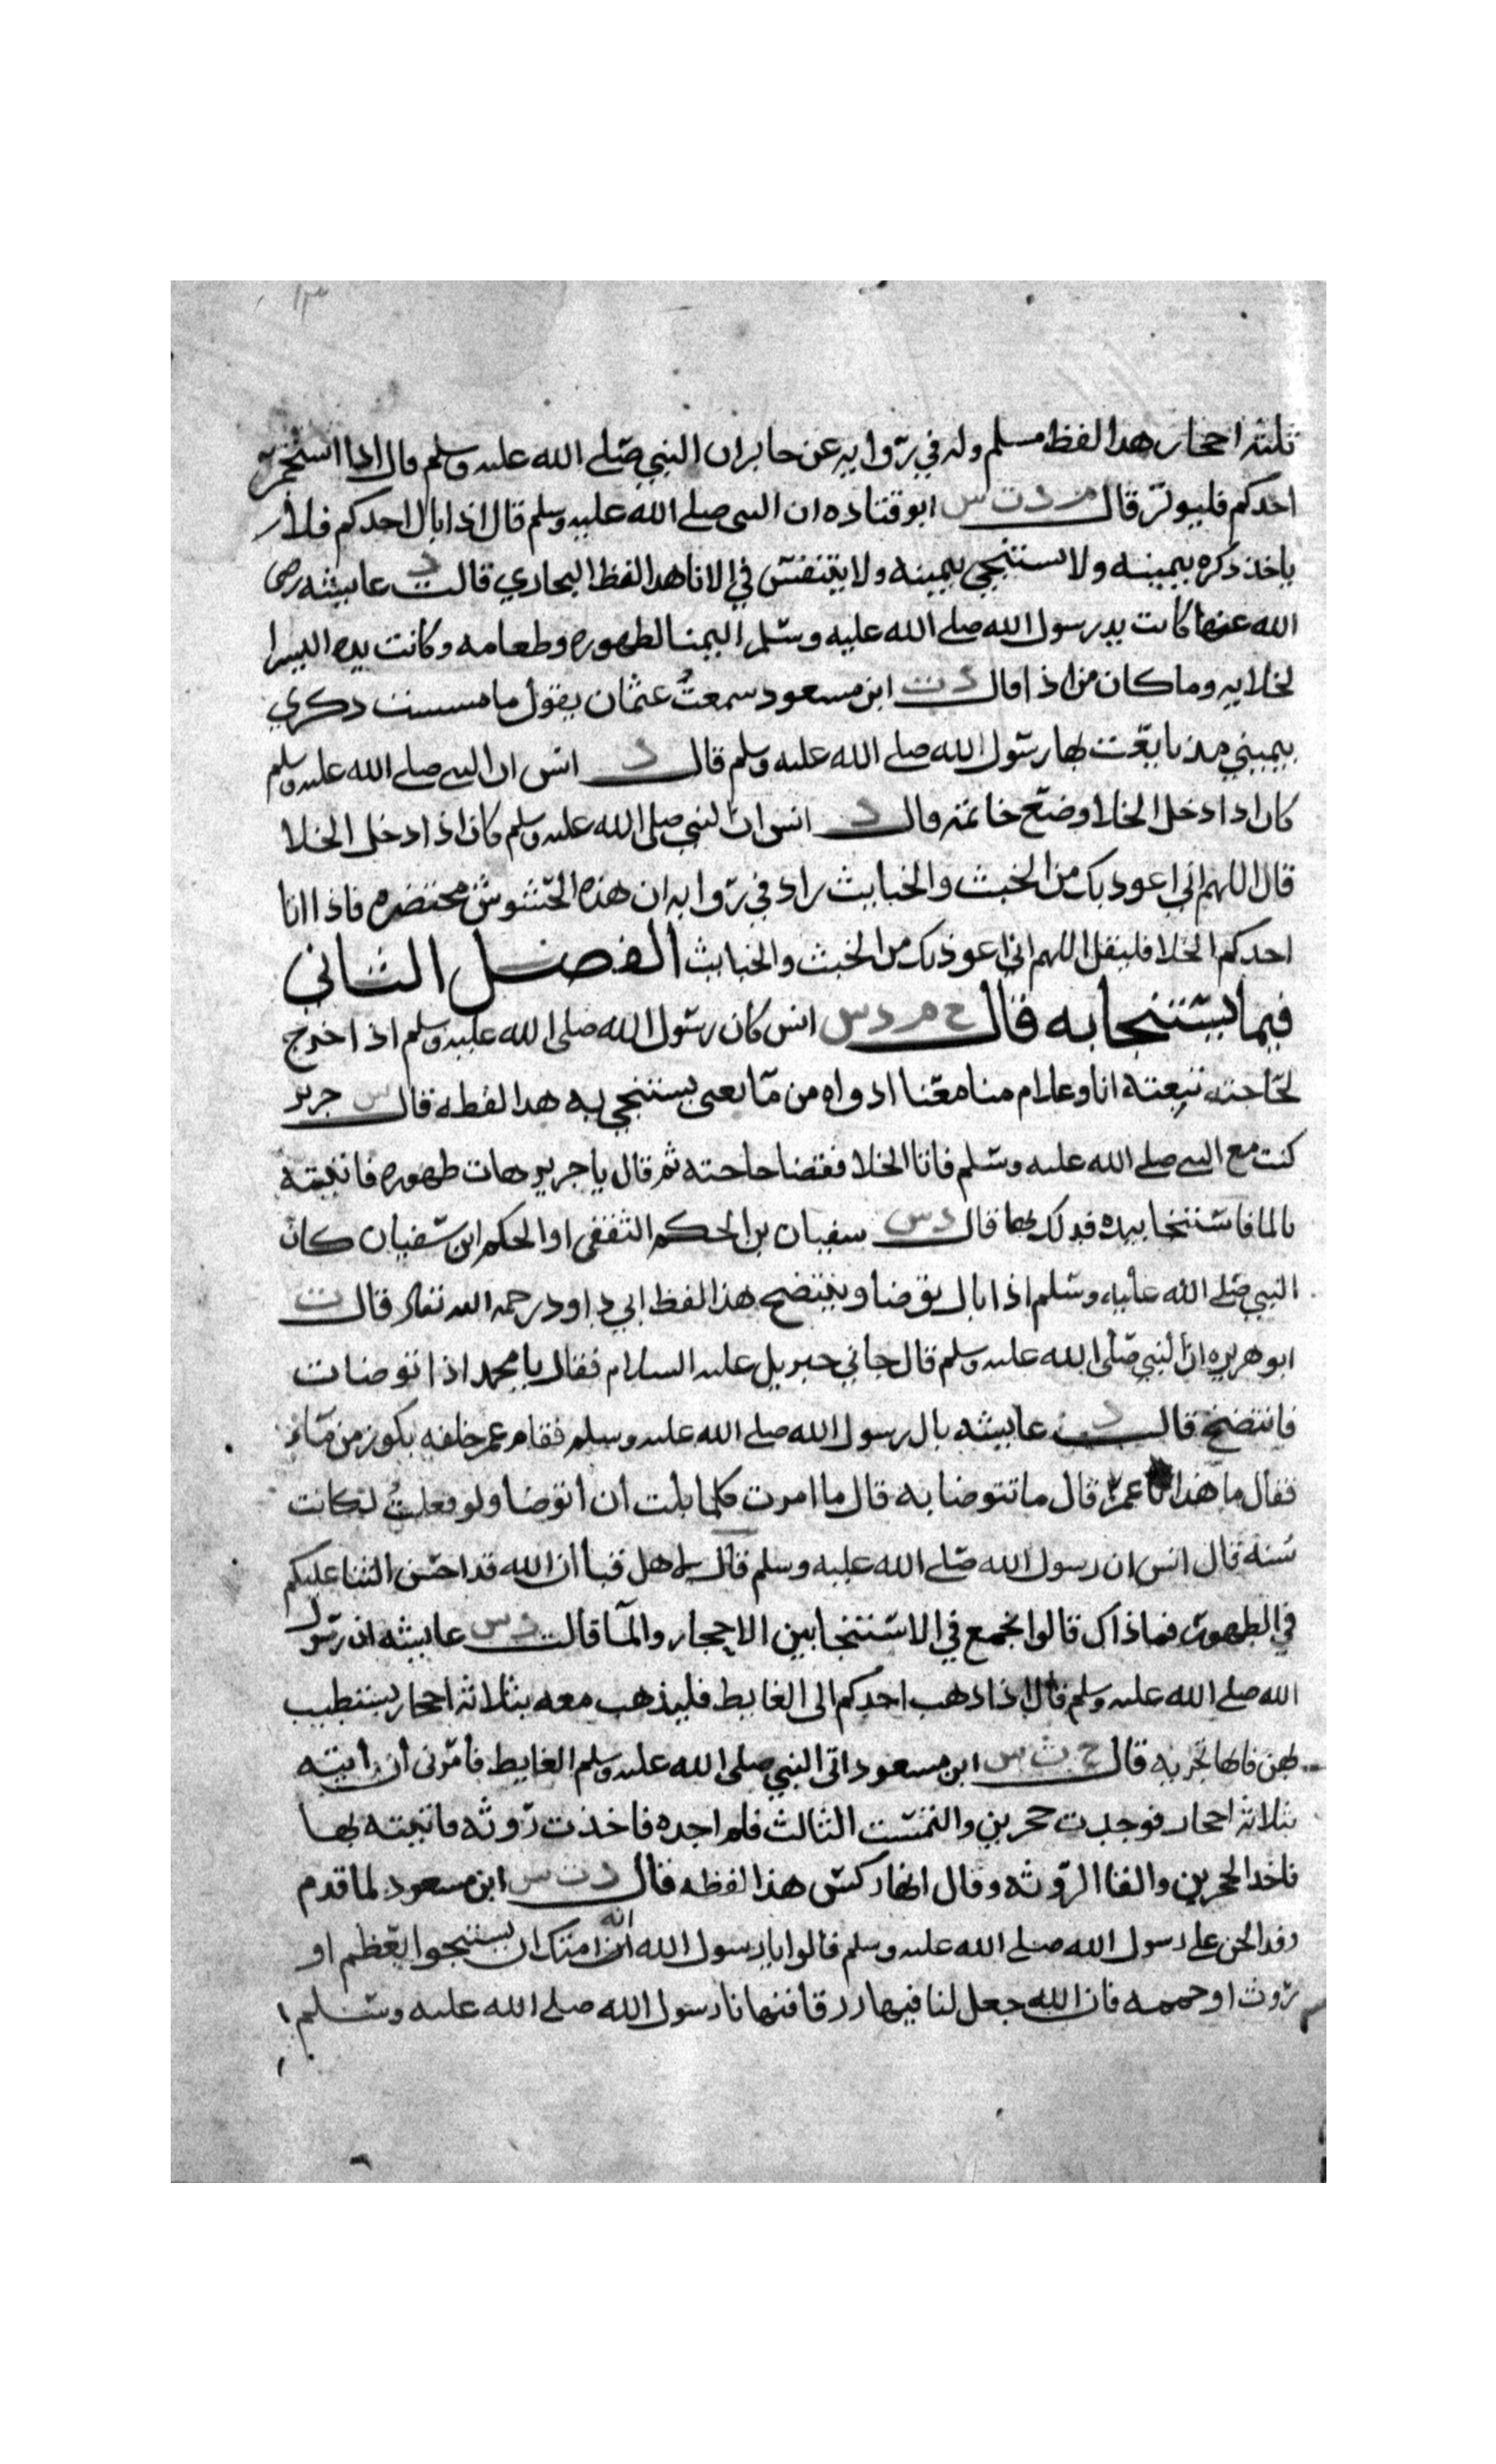 ثلثه احجار هدا لفظ مسلم وله في روايه عن جابر ان النبي صلى الله عليه وسلم قال اذا استجمر
احدكم فليوتر قال م د ت س ابو قتاده ان النبي صلى الله عليه وسلم قال اذا بال احدكم فلا
ياخذ ذكره بيمينه ولا يستنجي بيمينه ولا يتنفس في الانا هدا لفظ البخاري قالت د عايشه رضى
الله عنها كانت يد رسول الله صلى الله عليه وسلم اليمنا لطهوره وطعامه وكانت يده اليسرا
لخلايه وما كان من اذا قال د ت ابن مسعود سمعت عثمان يقول ما مسست ذكري
بيميني مذ بايعت بها رسول الله صلى الله عليه وسلم قال د انس ان النبي صلى الله عليه وسلم
كان اذا دخل الخلا وضع خاتمه قال د انس ان النبي صلى الله عليه وسلم كان اذا دخل الخلا
قال اللهم اني اعوذ بك من الخبث والخبايث زاد في روايه ان هذه الحشوش محتضره فاذا اتا
احدكم الخلا فليقل اللهم اني اعوذ بك من الخبث والخبايث الفصل الثاني
فيما يستنجا به قال خ م د س انس كان رسول الله صلى الله عليه وسلم اذا خرج
لحاجته تبعته انا وغلام منا معنا ادواه من ما يعني يستنجي به هدا لفظه قال س جرير
كنت مع النبي صلى الله عليه وسلم فاتا الخلا فقضا حاجته ثم قال يا جرير هات طهوره فاتيته
بالما فاستنجا بيده فدلك بها قال د س سفيان بن الحكم الثقفى او الحكم ابن سفيان كان
النبي صلى الله عليه وسلم اذا بال يتوضا وينتضح هذا لفظ ابي داود رحمه الله تعالى قال ت
ابو هريره ان النبي صلى الله عليه وسلم قال جاني جبريل عليه السلام فقال يا محمد اذا توضات
فانتضح قالت د عايشه بال رسول الله صلى الله عليه وسلم فقام عمر خلفه بكوز من ماء
فقال ما هذا يا عمر قال ما تتوضا به قال ما امرت كلما بلت ان اتوضا ولو فعلت لكانت
سنه قال انس ان رسول الله صلى الله عليه وسلم قال لاهل قبا ان الله قد احسن الثنا عليكم
في الطهور فما ذاك قالوا نجمع في الاستنجا بين الاحجار والمآ قالت د س عايشه ان رسول
الله صلى الله عليه وسلم قال اذا ذهب احدكم الى الغايط فليذهب معه بثلاثه احجار يستطيب
بهن فانها تجزيه قال خ ت س ابن مسعود اتى النبي صلى الله عليه وسلم الغايط فامرنى ان اتيته
بثلاثه احجار فوجدت حجرين والتمست الثالث فلم اجده فاخذت روثه فاتيته بها
فاخذ الحجرين والقا الروثه وقال انها ركس هذا لفظه قال د ت س ابن مسعود لما قدم
وفد الجن على رسول الله صلى الله عليه وسلم قالوا يا رسول الله انه امتك ان يستنجوا بعظم او
روث او حممه فان الله جعل لنا فيها رزقا فنهانا رسول الله صلى الله عليه وسلم